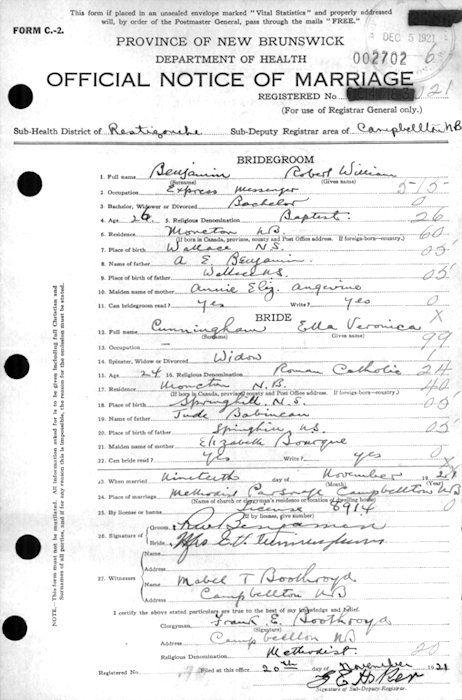 This form if placed in an unsealed envelope marked "Vital Statistics" and properly addressed
will, by order of the Postmaster General, pass through the mails "FREE."
FORM C.-2.
PROVINCE OF NEW BRUNSWICK
DEC 5 1921
DEPARTMENT OF HEALTH
002702
OFFICIAL NOTICE OF MARRIAGE
REGISTERED No. 21
(For use of Registrar General only.)
Sub-Health District of Restigouche Sub-Deputy Registrar area of Campbellton NB
BRIDEGROOM
1. Full name Benjamin Robert William
(Surname) (Given names)
2. Occupation Express Messenger 5-15-
3. Bachelor, Widower or Divorced Bachelor 0
4. Age 26 5. Religious Denomination Baptist 26
6. Residence Moncton NB. 60
(If born in Canada, province, county and Post Office address. If foreign-born—country.)
7. Place of birth Wallace N.S. 05
8. Name of father A E. Benjamin
9. Place of birth of father Wallace N.S. 05
10. Maiden name of mother Annie Eliz. Angevine
11. Can bridegroom read? Yes Write? Yes 0
BRIDE X
12. Full name Cunningham Ella Veronica
(Surname) (Given names)
13. Occupation — 99
14. Spinster, Widow or Divorced Widow 1
15. Age 24 16. Religious Denomination Roman Catholic 24
17. Residence Moncton N.B. 40
(If born in Canada, province, county and Post Office address. If foreign-born—country.)
18. Place of birth Springhill N.S. 05
19. Name of father Jude Babineau
20. Place of birth of father Springhill N.S. 05
21. Maiden name of mother Elizabeth Bourque
22. Can bride read? Yes Write? yes 0
X
23. When married Nineteenth day of November 1921
(Month) (Year)
24. Place of marriage Methodist Parsonage Campbellton NB
(Name of church, clergyman's residence or location of dwelling house)
25. By license or banns License 8914 0
(If by license, give number)
26. Signature of Groom Benjamin
Bride Mrs
Name
Address
27. Witnesses Name Mabel T Boothroyd
Address Campbellton NB
I certify the above stated particulars are true to the best of my knowledge and belief.
Clergyman, Frank E. Boothroyd
(Signature)
Address Campbellton NB
Religious Denomination, Methodist 20
Registered No. Filed at this office 20th day of November 1921
Signature of Sub-Deputy-Registrar.
NOTE.—This form must not be mutilated. All information asked for is to be given including full Christian and
Surnames of all parties, and if for any reason this is impossible, the reason for the omission must be stated.